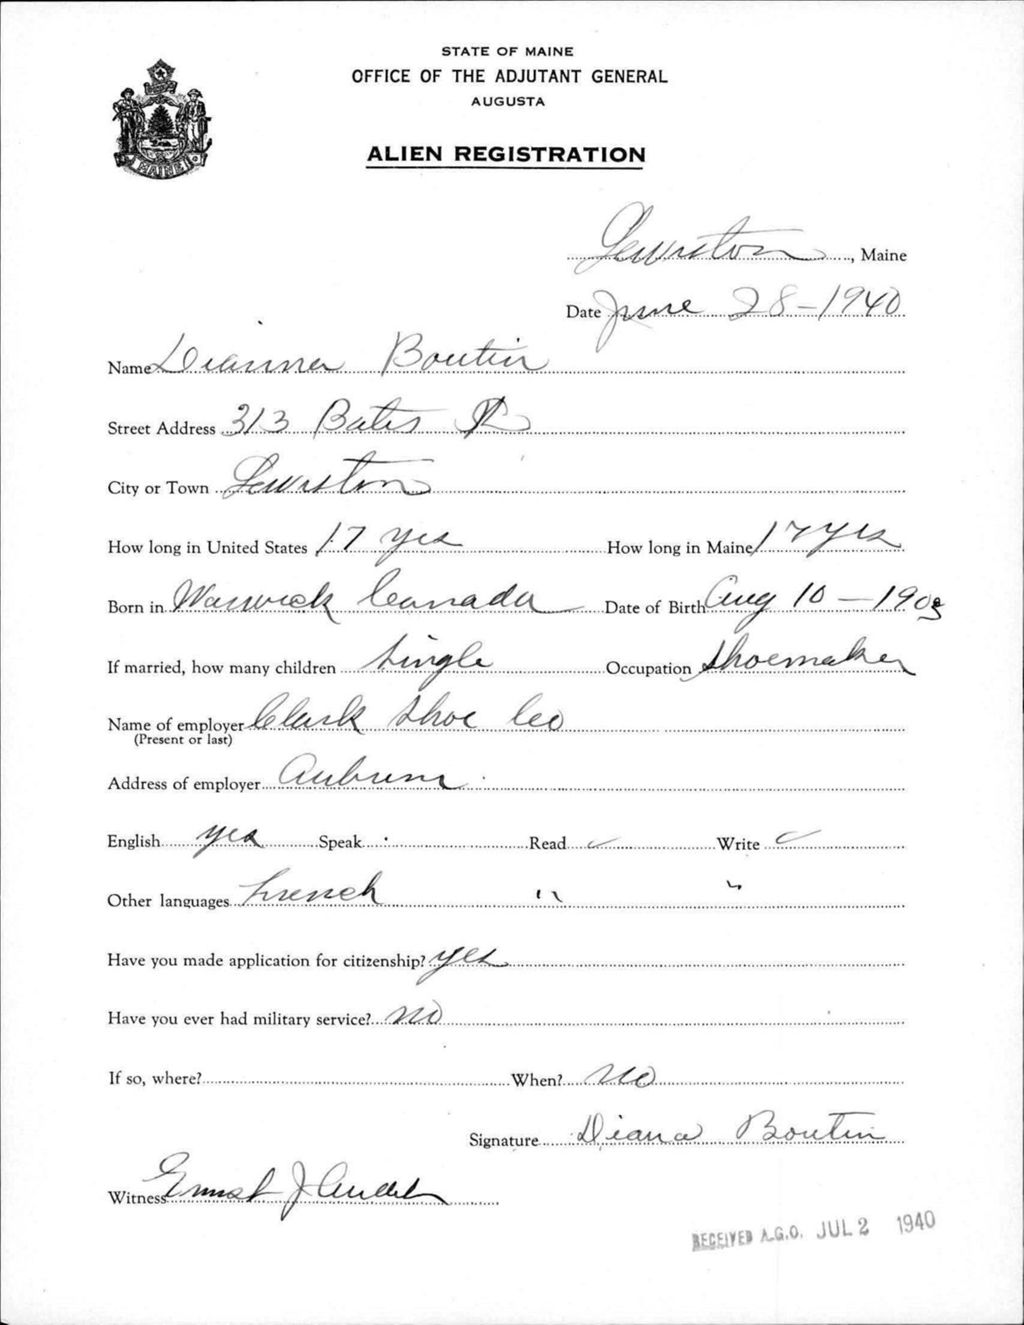 STATE OF MAINE
OFFICE OF THE ADJUTANT GENERAL
AUGUSTA
ALIEN REGISTRATION
MAINE
Lewiston, Maine
Date June 28-1940
Name Dianna Boutin
Street Address 313 Bates St
City or Town Lewiston
How long in United States 17 yes How long in Maine 17 yes
Born in Warwick Canada Date of Birth Aug 10 - 1903
If married, how many children Single Occupation Shoemaker
Name of employer Clark Shoe Co
(Present or last)
Address of employer Auburn
English yes Speak Read ✓ Write ✓
Other languages French " "
Have you made application for citizenship? yes
Have you ever had military service? no
If so, where? When? No
Signature Diana Boutin
Witness J
RECEIVED A.G.O. JUL 2 1940